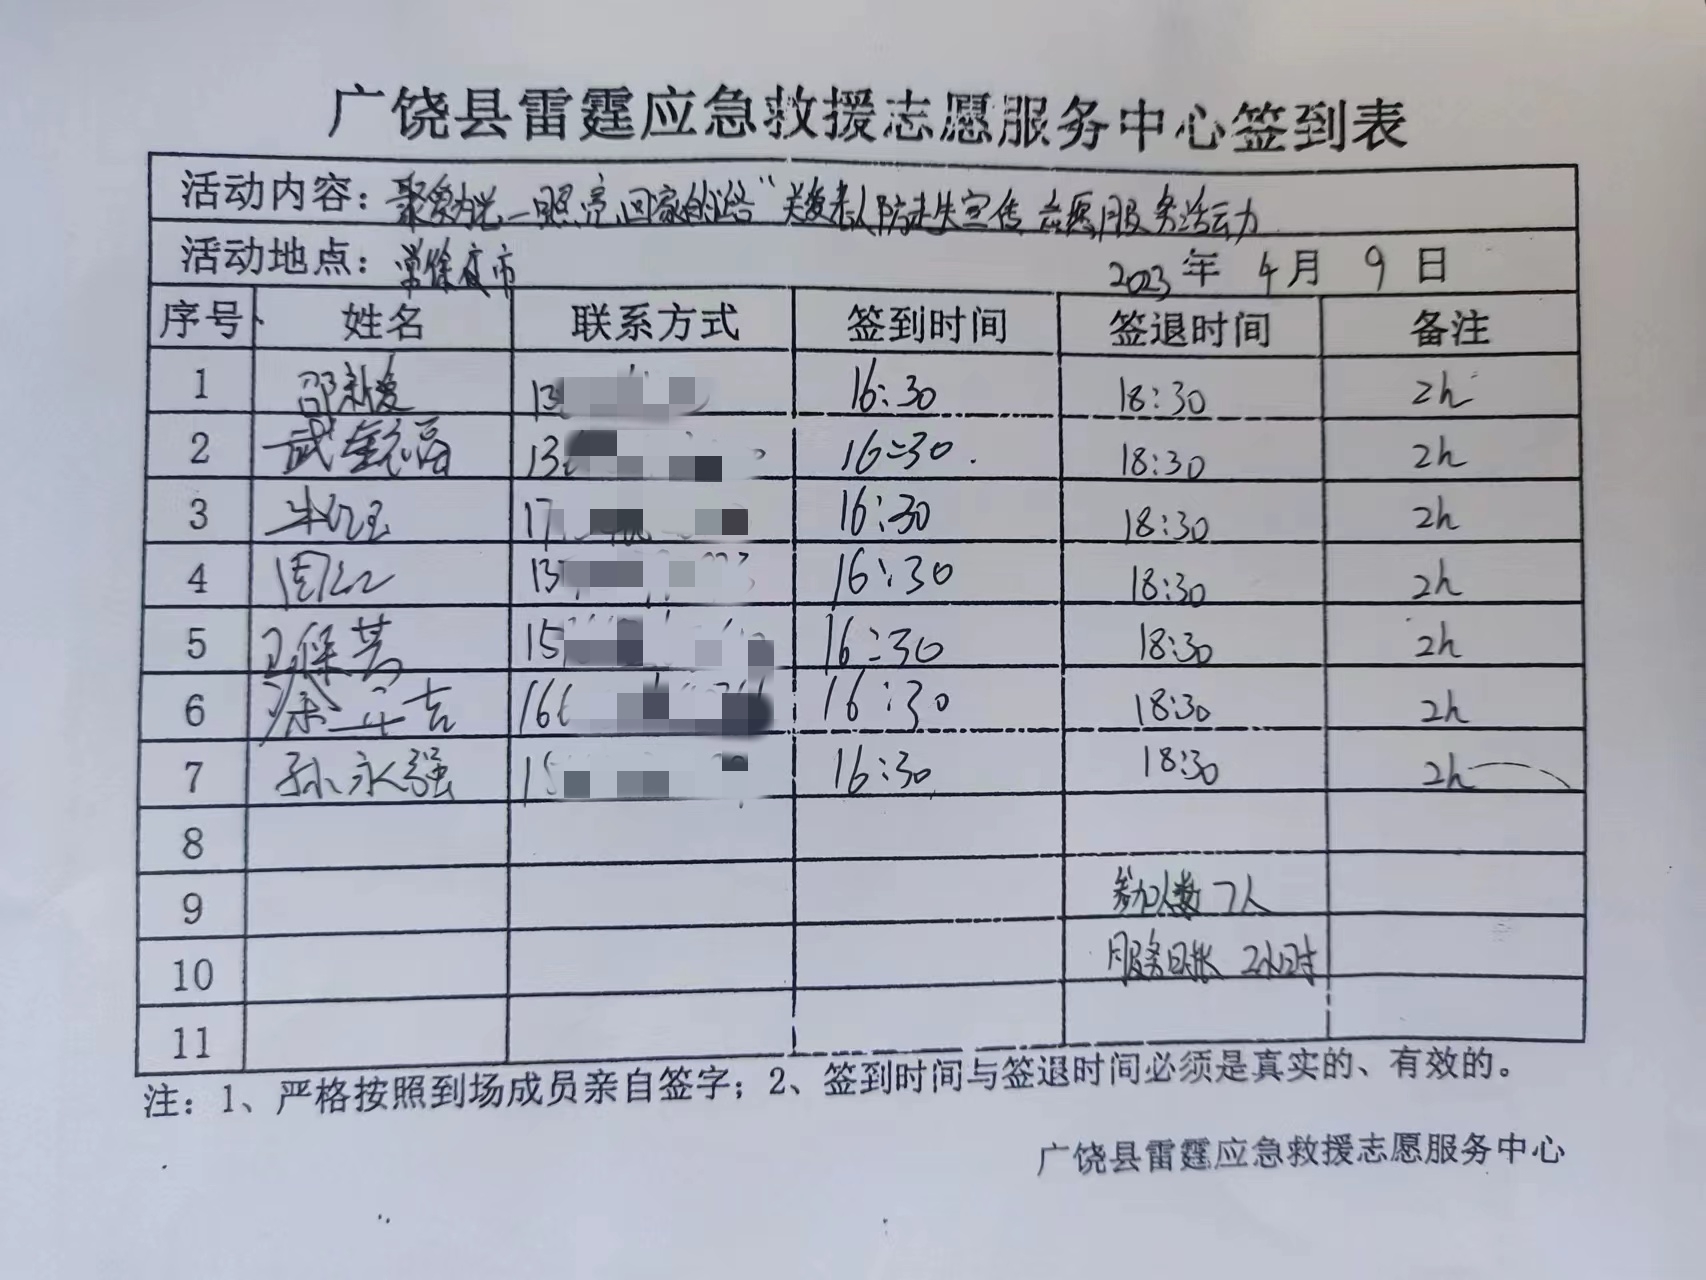 广饶县雷霆应急救援志愿服务中心签到表
活动内容：聚爱为光 照亮回家的路"关爱老人防走失宣传志愿服务活动
活动地点：常徐夜市 2023年4月9日
序号 姓名 联系方式 签到时间 签退时间 备注
1 邵新爱 13 16:30 18:30 2h
2 武金福 13 16:30 18:30 2h
3 牛红玉 17 16:30 18:30 2h
4 周红 13 16:30 18:30 2h
5 保芳 15 16:30 18:30 2h
6 16 16:30 18:30 2h
7 孙永强 15 16:30 18:30 2h
8
9 参加人数 7人
10 服务时长 2小时
11
注：1、严格按照到场成员亲自签字；2、签到时间与签退时间必须是真实的、有效的。
广饶县雷霆应急救援志愿服务中心